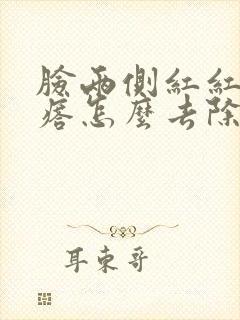 臉兩側紅紅
痞怎麼去除
耳東哥